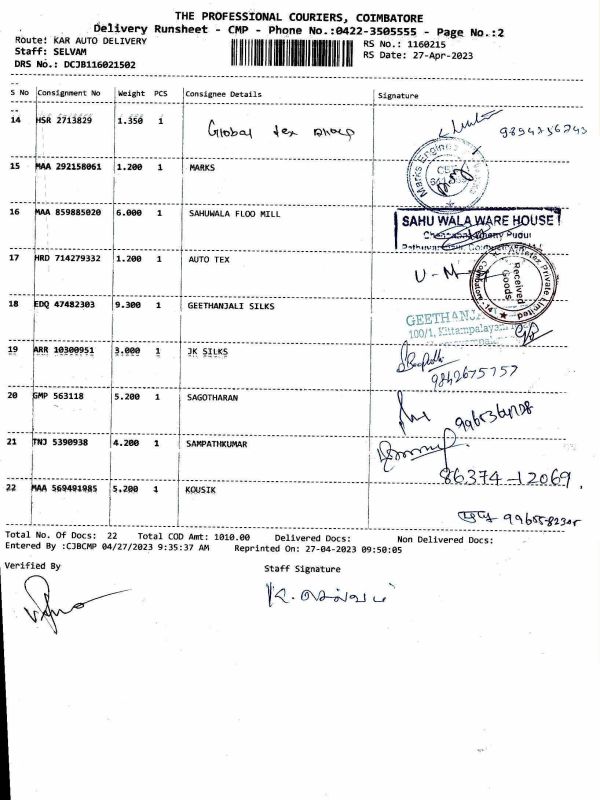 THE PROFESSIONAL COURIERS, COIMBATORE
Delivery Runsheet - CMP - Phone No.:0422-3505555 - Page No.:2
Route: KAR AUTO DELIVERY
RS No.: 1160215
Staff: SELVAM
RS Date: 27-Apr-2023
DRS No.: DCJB116021502
S No Consignment No Weight PCS Consignee Details Signature
14 HSR 2713829 1.350 1 Global tex
15 MAA 292158061 1.200 1 MARKS
Marks Engines
16 MAA 859885020 6.000 1 SAHUWALA FLOO MILL
SAHU WALA WARE HOUSE
17 HRD 714279332 1.200 1 AUTO TEX
Private Limited
Received Goods
18 EDQ 47482303 9.300 1 GEETHANJALI SILKS
GEETHANJ
100/1, Kittampalayam
19 ARR 10300951 3.000 1 JK SILKS
9842675757
20 GMP 563118 5.200 1 SAGOTHARAN
21 TNJ 5390938 4.200 1 SAMPATHKUMAR
86374-12069
22 MAA 569491985 5.200 1 KOUSIK
Total No. of Docs: 22 Total COD Amt: 1010.00 Delivered Docs: Non Delivered Docs:
Entered By :CJBCMP 04/27/2023 9:35:37 AM Reprinted On: 27-04-2023 09:50:05
Verified By
Staff Signature